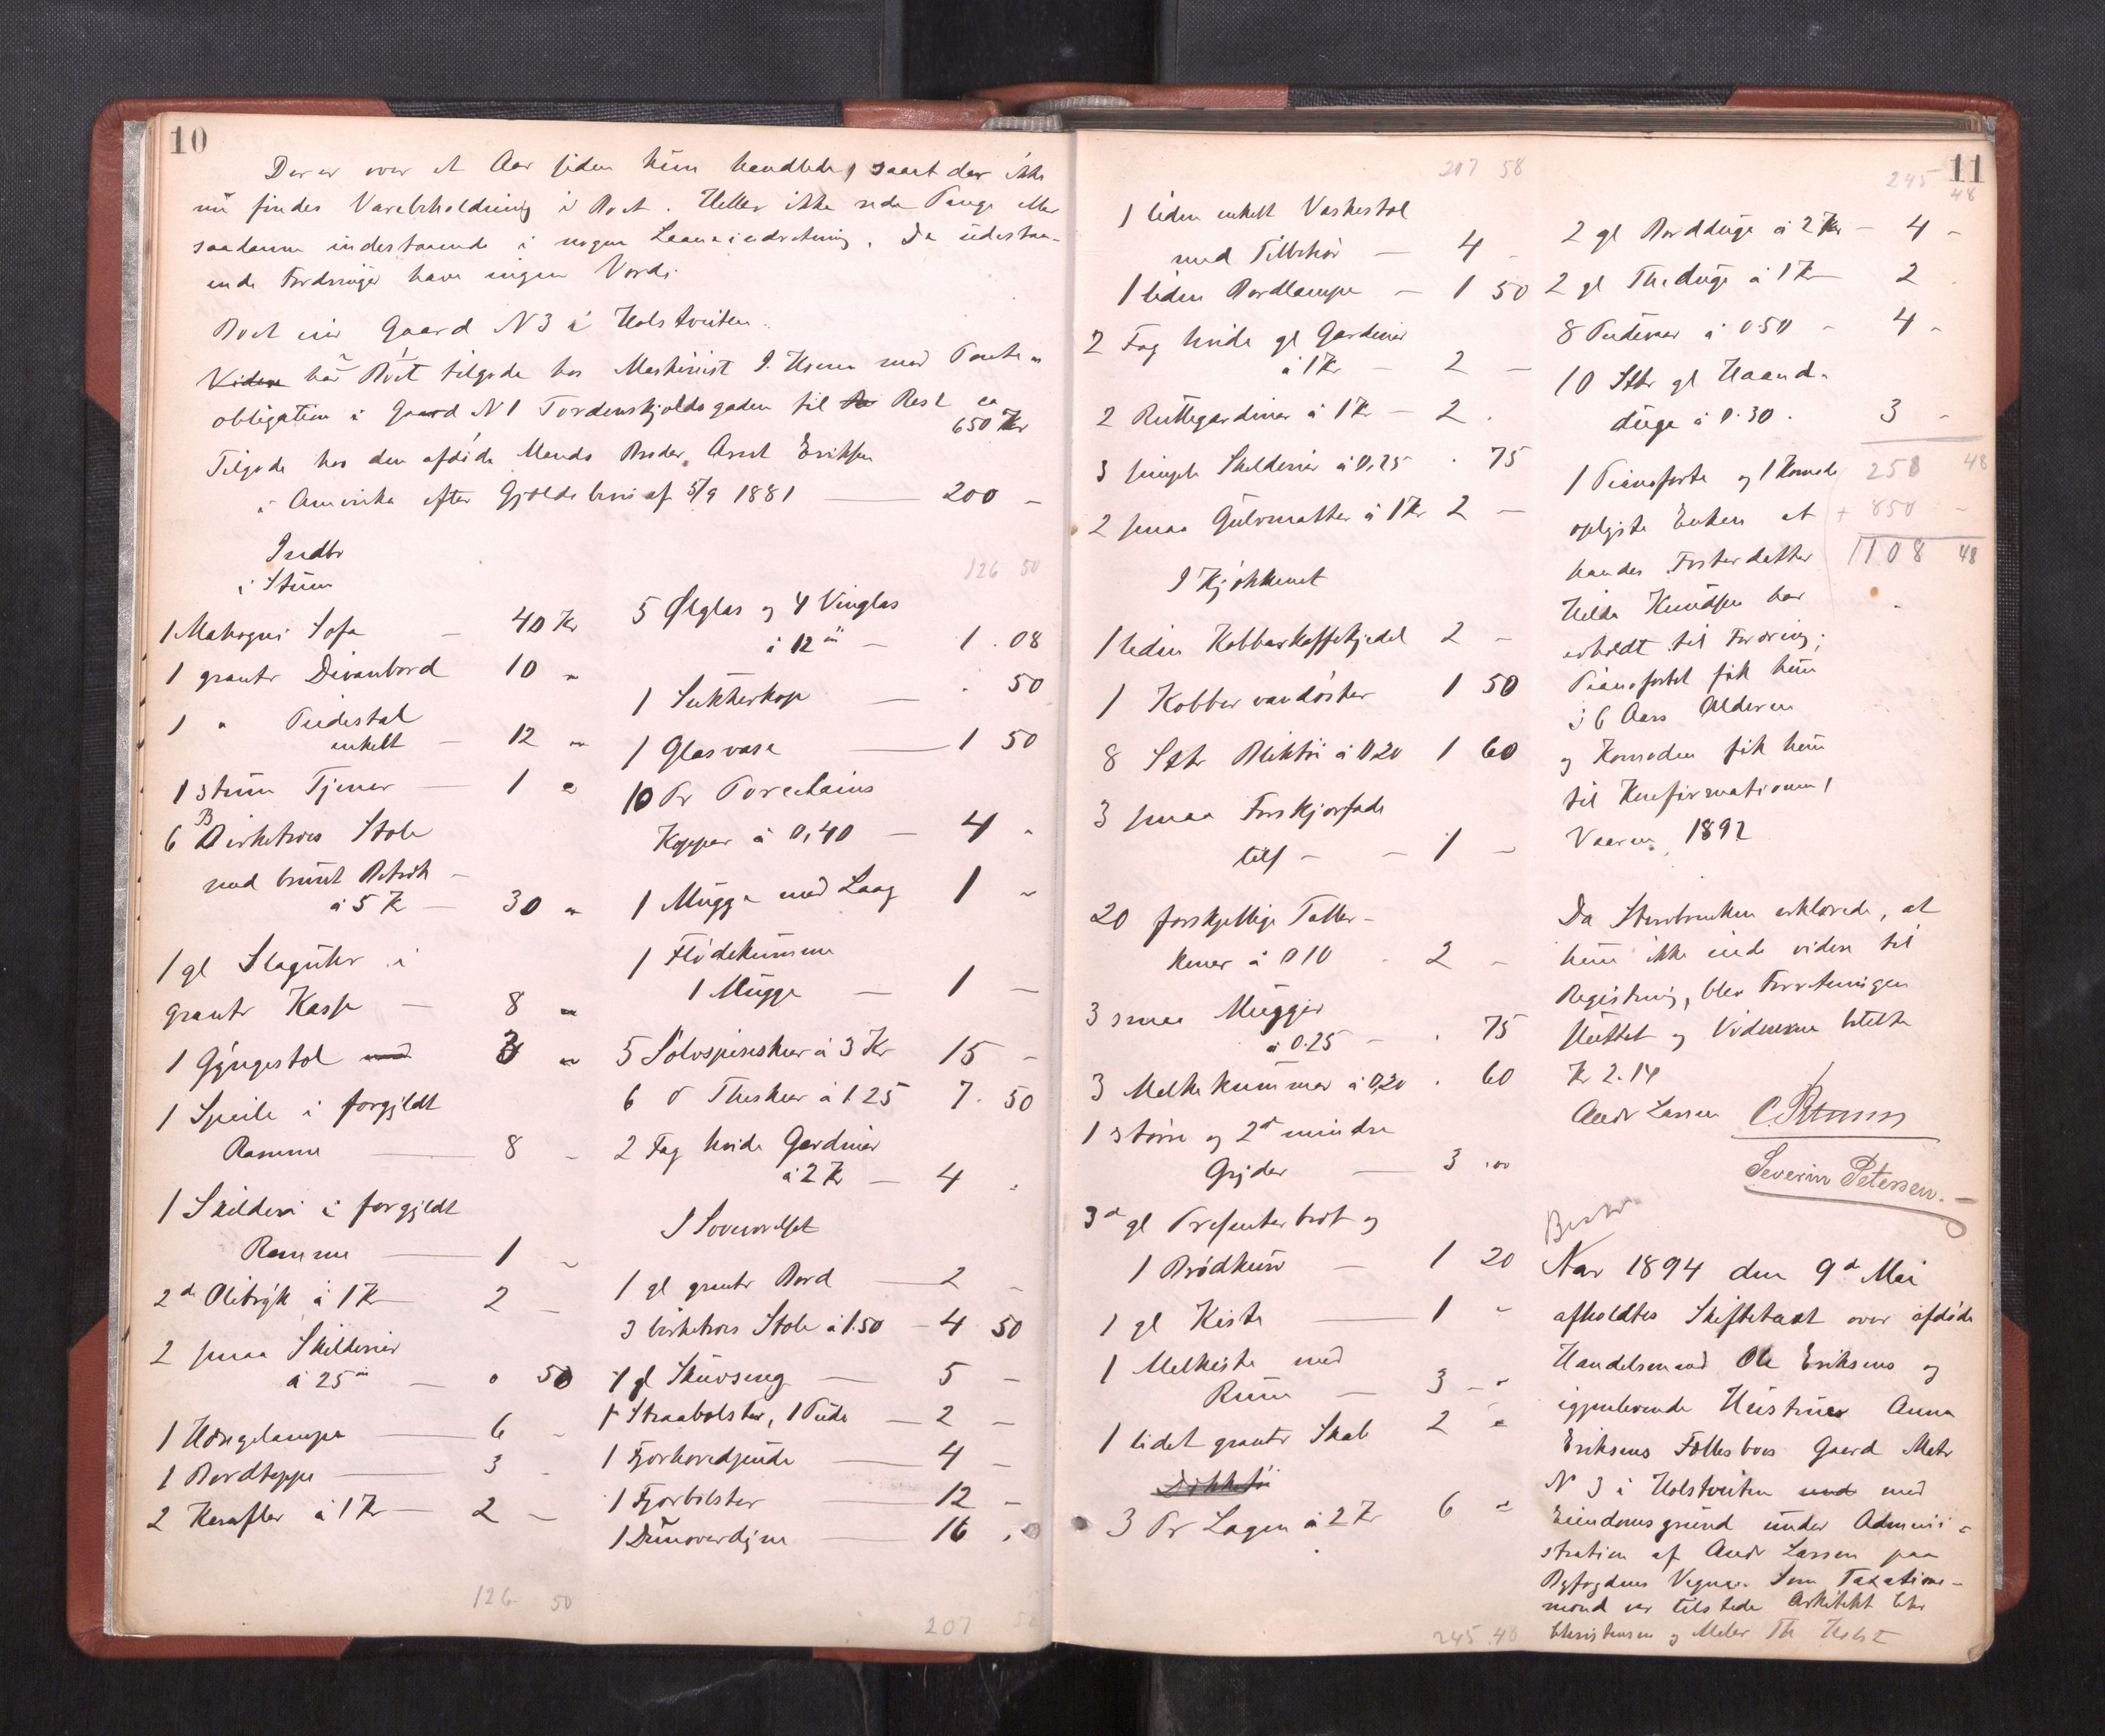 10
Der er over et Aar siden hun handlede, saart der ikke
nu findes Varebeholdning i Boet. Heller ikke rede Penge eller
saadanne indestaaende i nogen Laaneindretning. De udestaa-
ende Fordringer have ingen Værdi.
Boet eier Gaard N 3 i Holstveiten.
Videre har Boet tilgode hos Maskinist J. Hsen med Pante
obligation i Gaard N 1 Tordenskjoldsgaden til Rest ca
650 Kr
Tilgode hos den afdøde Mands Broder Arnt Eriksen
i Amerika efter Gjældsbrev af 5/9 1881 — 200 –
Indbo
i Stuen
1 Mahogni Sofa – 40 Kr
1 grantr Divanbord 10 "
1 " Pidestal
enkelt – 12 "
1 stum Tjener – 1 "
6 Birketræs Stole
med brunt Betræk –
à 5 K – 30 "
1 gl Slaguhr i
grantr Kasse – 8 "
1 Gyngestol 3 "
1 Speile i forgyldt
Ramme — 8 –
1 Skilderi i forgyldt
Ramme — 1 –
2d Olitryk à 1 Kr 2 –
2 smaa Skilderier
à 25 – 0 50
1 Hængelampe — 6 –
1 Bordteppe — 3 –
2 Karafler à 1 Kr — 2 –
126 50
126 50
5 Ølglas og 4 Vinglas
à 12 – 1 . 08
1 Sukkerkop — . 50
1 Glasvase — 1 50
10 Pr Porcelains
Kopper à 0,40 – 4 "
1 Mugge med Laag 1 –
1 Flødekumme
1 Mugge — 1 –
5 Sølvspiseskeer à 3 Kr 15 –
6 d Theskeer à 1.25 7 . 50
2 Fag hvide Gardiner
à 2 Kr – 4 .
I Soveværelset
1 gl grantr Bord — 2 –
3 birketræs Stole à 1.50 – 4 50
1 gl Skuvseng — 5 –
1 Straabolster, 1 Pude – 2 –
1 Fjørhovedpude — 4 –
1 Fjørbolster — 12 –
1 Dunoverdyne — 16 .
207 50
11
207 58
1 liden enkelt Vaskestol
med Tilbehør — 4 –
1 liden Bordlampe – 1 50
2 Fag hvide gl Gardiner
à 1 Kr – 2 –
2 Rullegardiner à 1 Kr – 2 .
3 simple Skilderier à 0,25 . 75
2 smaa Gulvmatter à 1 Kr 2 –
I Kjøkkenet
1 liden Kobberkaffekjedel 2 –
1 Kobber vandøsker 1 50
8 Stkr Bliktøi à 0,20 1 60
3 smaa Forskjærfade
tils – – 1 –
20 forskjellige Taller-
kener à 0 10 . 2 –
3 smaa Mugger
à 0.25 – . 75
3 Melkekummer à 0,20 . 60
1 større og 2d mindre
Gryder — 3 . 00
3d gl Presenterbret og
1 Brødkurv – 1 20
1 gl Kiste — 1 "
1 Melkiste med
Rum — 3 – "
1 lidet grantr Skab 2 "
Dækketøi
3 Pr Lagen à 2 Kr 6 "
245.48
245 48
2 gl Borddüge à 2 Kr – 4 –
2 gl Thedüge à 1 K – 2 .
8 Pudevar à 0 50 – 4 –
10 Stkr gl Haand-
düge à 0.30 . 3 –
258 48
+ 850 –
1108 48
1 Pianoforte og 1 Komode
oplyste Enken at
hendes Fosterdatter
Hilda Knudsen har
erholdt til Foræring;
Pianofortet fik hun
i 6 Aars Alderen
og Komoden fik hun
til Konfirmationen,
Vaaren 1892
Da Sterbenken erklærede, at
hun ikke eied videre til
Registrering, blev Forretningen
sluttet og Vidnerne betalte
Kr 2.14
Andr Larsen C. Petersen
Severin Petersen.
Aar 1894 den 9d Mai
afholdtes Skiftetaxt over afdøde
Handelsmand Ole Eriksens og
igjenlevende Hustrues Anna
Eriksens Fællesboes Gaard Matr
N 3 i Holstveiten med
Eiendomsgrund under Admini-
stration af Andr Larsen paa
Byfogdens Vegne. Som Taxations-
mænd var tilstede Arkitekt Chr
Christensen og Maler Th Holst